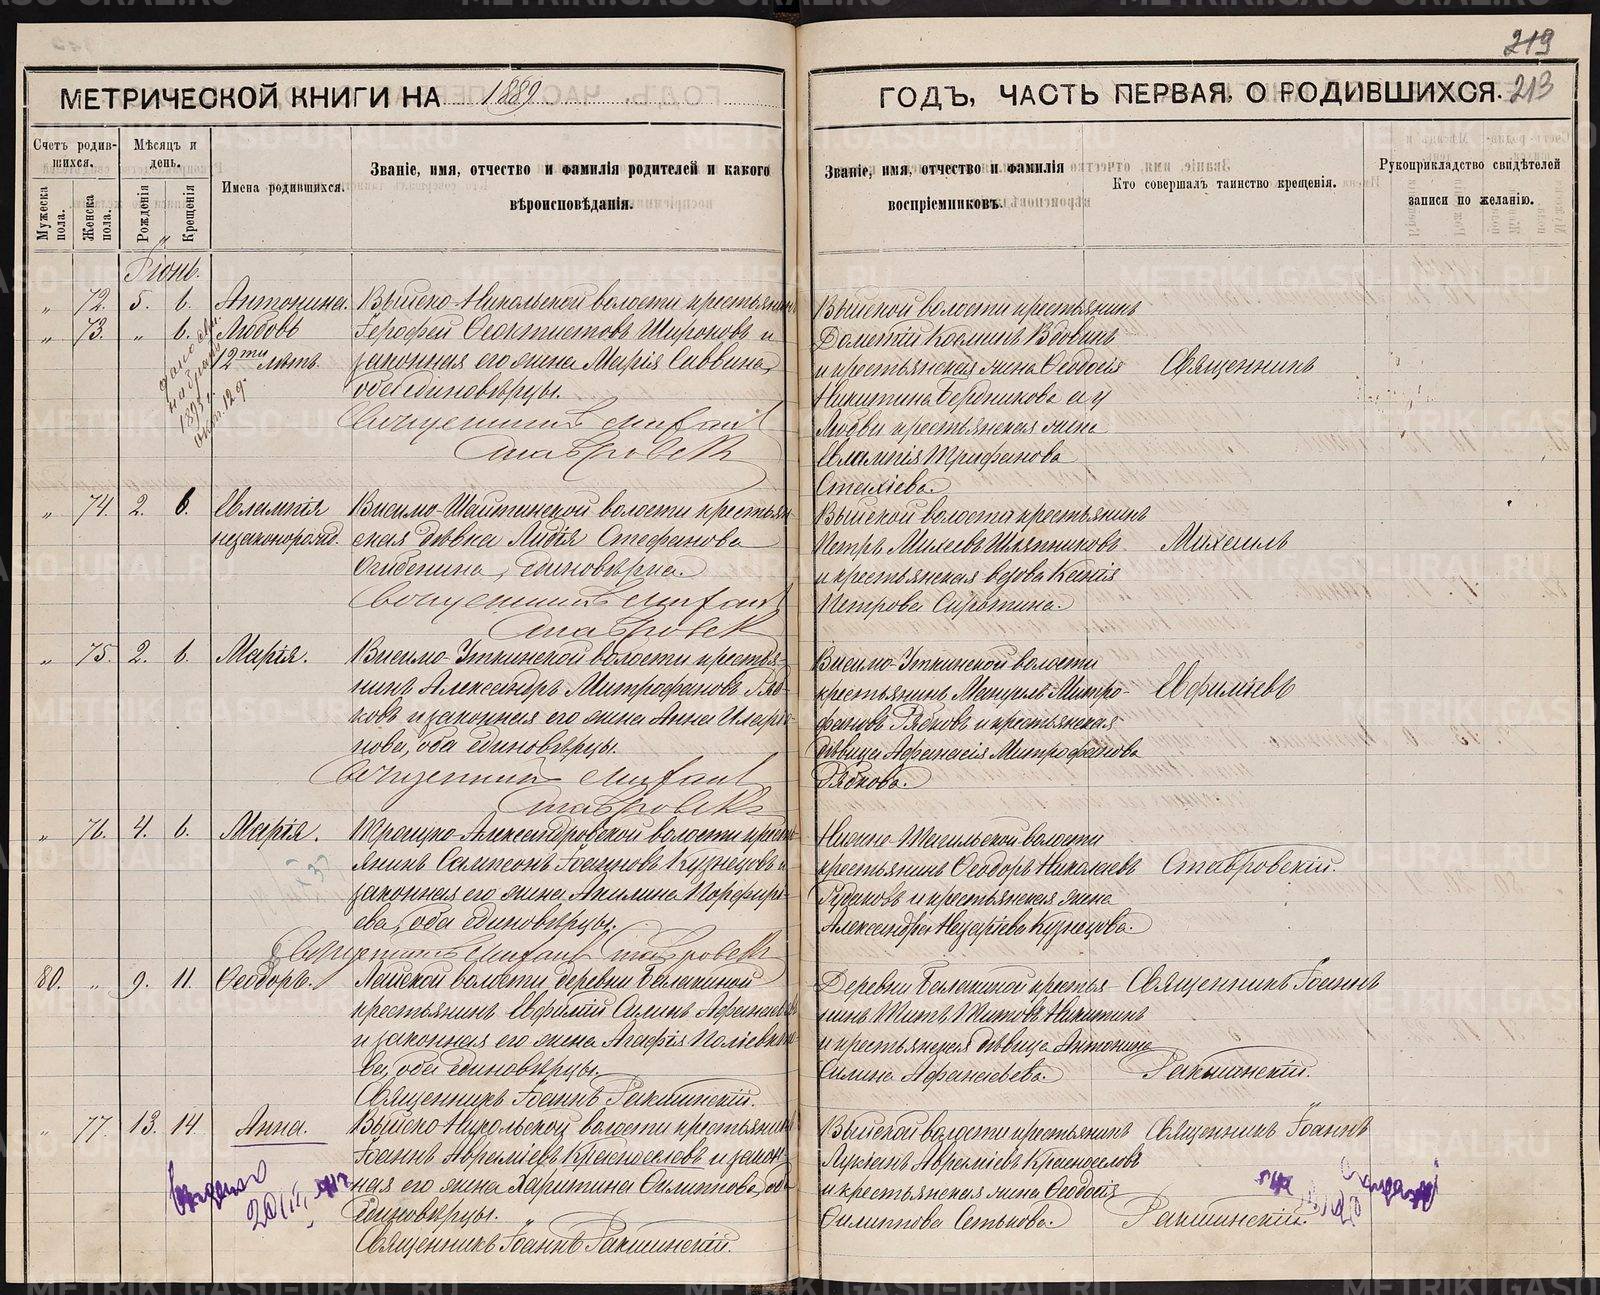 219
МЕТРИЧЕСКОЙ КНИГИ НА 1889
ГОДЪ, ЧАСТЬ ПЕРВАЯ, О РОДИВШИХСЯ. 213
Счетъ родив-
шихся.
Мужеска пола.
Женска пола.
Мѣсяцъ и день.
Рожденія
Крещенія
Имена родившихся.
Званіе, имя, отчество и фамилія родителей и какого
вѣроисповѣданія.
Званіе, имя, отчество и фамилія
воспріемниковъ.
Кто совершалъ таинство крещенія.
Рукоприкладство свидѣтелей
записи по желанію.
Іюнь.
" 72. 5. 6. Антонина. Выйско-Никольской волости крестьянинъ
" 73. " 6. Любовь Герофей Феоктистовъ Широковъ и
12ти лѣтъ. законная его жена Марія Саввина,
оба единовѣрцы.
1895 г.
окт. 12 д.
Священникъ Михаилъ
Ставровскій
Выйской волости крестьянинъ
Дометій Косминъ Вдовинъ
и крестьянская жена Феодосія
Никитина Бердникова а у
Любви крестьянская жена
Евлампія Трифанова
Стахіева.
Священникъ
" 74. 2. 6. Евлампія Висимо-Шайтинской волости крестьян-
незаконорожд. ская дѣвка Лидія Стефанова
Огибенина, единовѣрка.
Священникъ Михаилъ
Ставровскій
Выйской волости крестьянинъ
Петръ Михеевъ
и крестьянская вдова Ксенія
Петрова Сиротина.
Михаилъ
" 75. 2. 6. Марія. Висимо-Уткинской волости крестья-
нинъ Александръ Митрофановъ Ряб-
ковъ и законная его жена Анна Иларіо-
нова, оба единовѣрцы.
Священникъ Михаилъ
Ставровскій
Висимо-Уткинской волости
крестьянинъ Мануилъ Митро-
фановъ Рябковъ и крестьянская
дѣвица Афанасія Митрофанова
Рябкова.
Евфиміевъ
" 76. 4. 6. Марія. Троицко-Александровской волости кресть-
янинъ Сампсонъ Іоанновъ Кузнецовъ и
законная его жена Акилина Порфирь-
ева, оба единовѣрцы.
Священникъ Михаилъ Ставровскій
Нижне-Тагильской волости
крестьянинъ Феодоръ Николаевъ
Гудковъ и крестьянская жена
Александра Назаріева Кузнецова.
Ставровскій.
80. " 9. 11. Феодоръ. Лайской волости, деревни Балакиной
крестьянинъ Евфимій Силинъ Афанасьевъ
и законная его жена Агафія Поліевкто-
ва, оба единовѣрцы.
Священникъ Іоаннъ Ракшинскій.
Деревни Балакиной крестья
нинъ Титъ Титовъ Никитинъ
и крестьянская дѣвица Антонина
Силина Афанасьева.
Священникъ Іоаннъ
Ракшинскій.
" 77. 13. 14. Анна. Выйско-Никольской волости крестьянинъ
Іоаннъ Авраміевъ Красноселовъ и закон-
ная его жена Харитина Филиппова, оба
единовѣрцы.
Священникъ Іоаннъ Ракшинскій.
Выйской волости крестьянинъ
Лукіанъ Авраміевъ Красноселовъ
и крестьянская жена Феодосія
Филиппова Сенькова.
Священникъ Іоаннъ
Ракшинскій.
METRIKI.GASO-URAL.RU